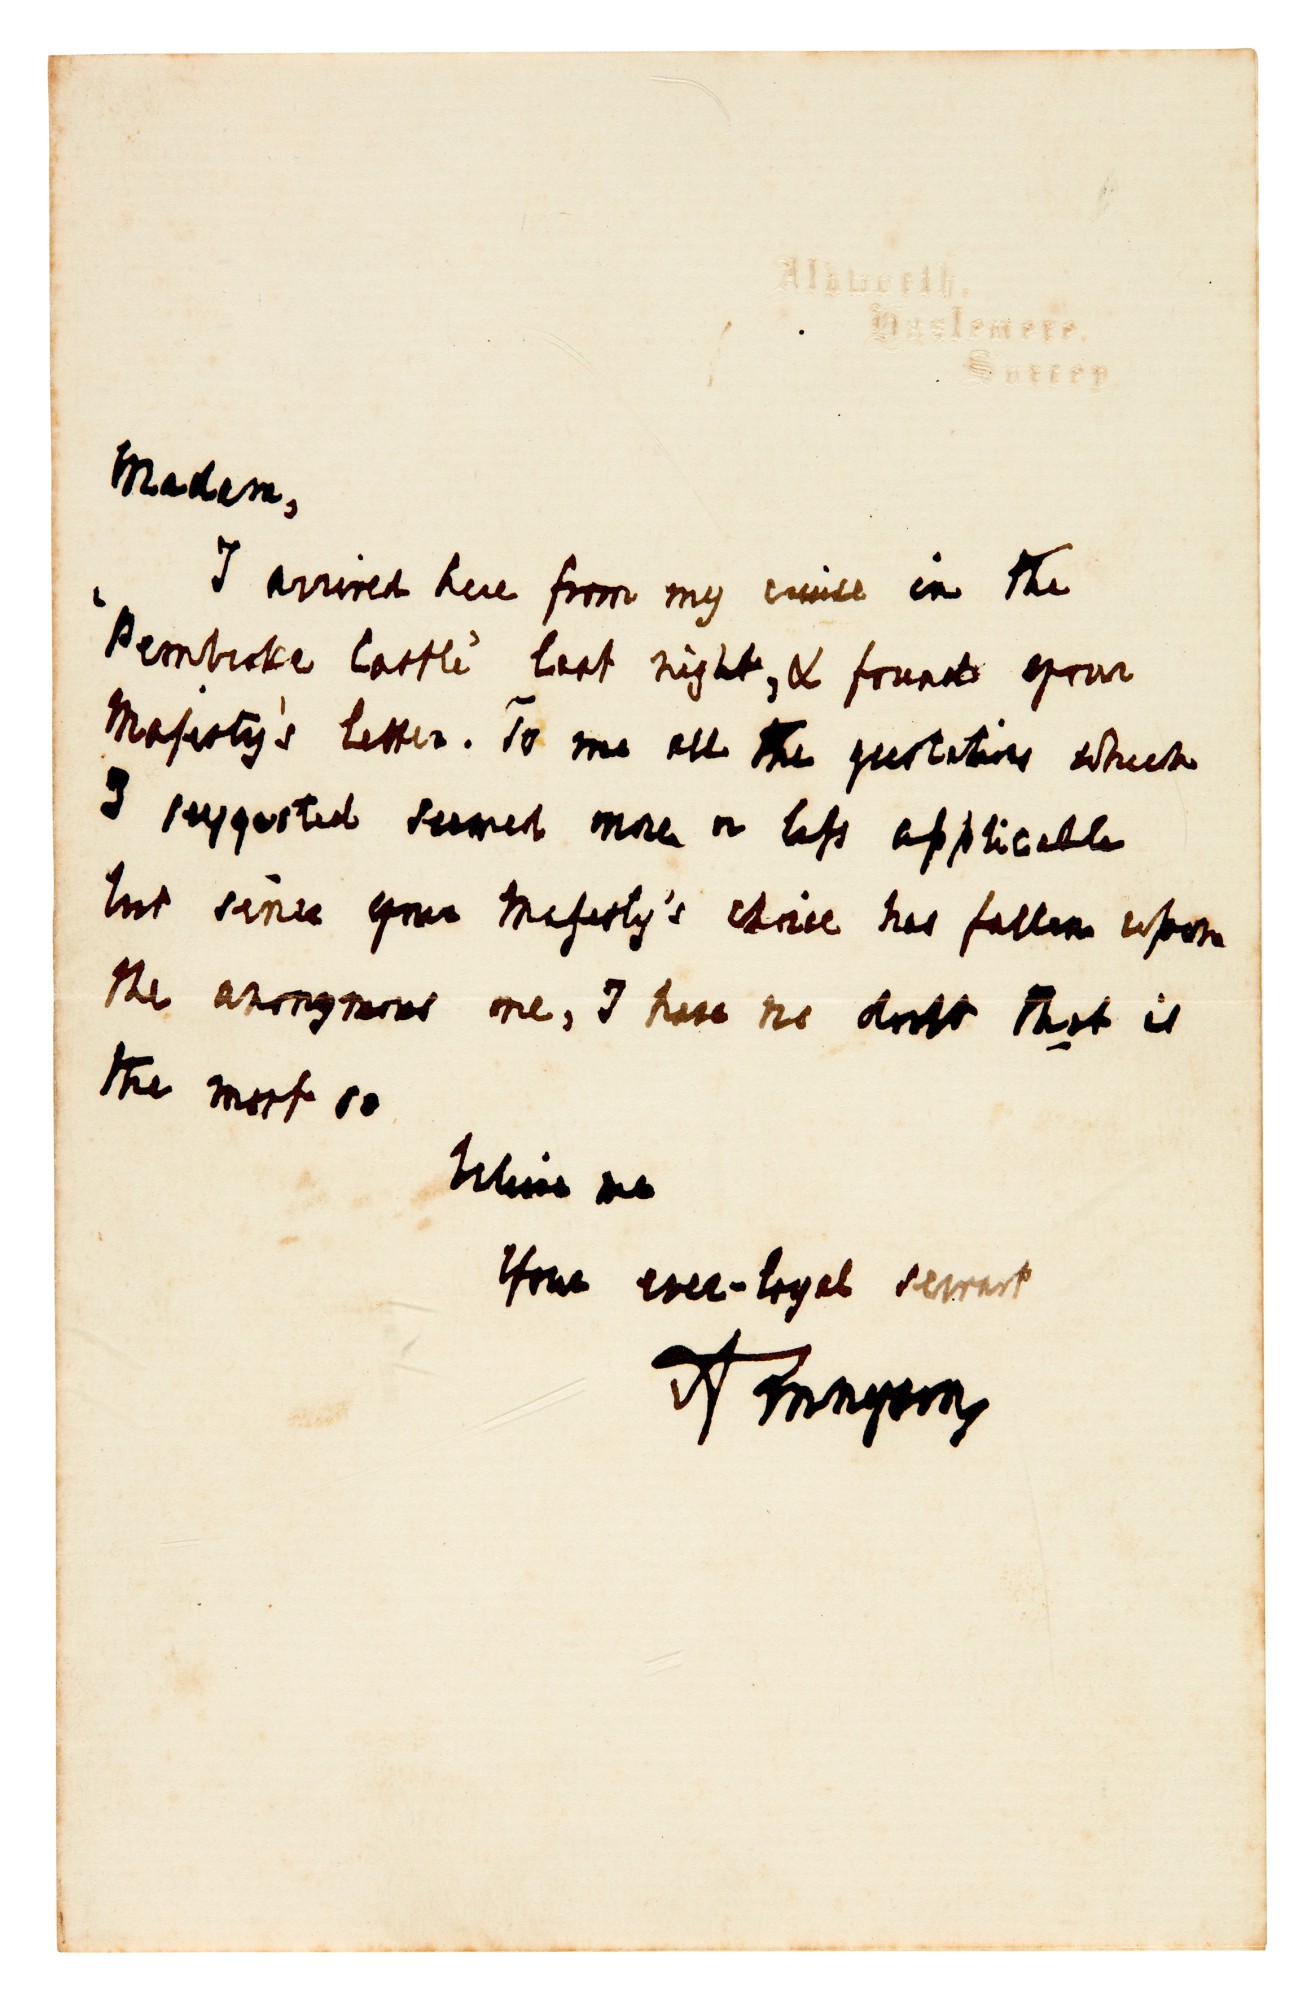 Aldworth,
Haslemere,
Surrey
Madam,
I arrived here from my cruise in the
'Pembroke Castle' last night, & found your
Majesty's letter. To me all the quotations which
I suggested seemed more or less applicable
but since your Majesty's choice has fallen upon
the anonymous one, I have no doubt that is
the most so
believe me
Your ever-loyal servant
A Tennyson